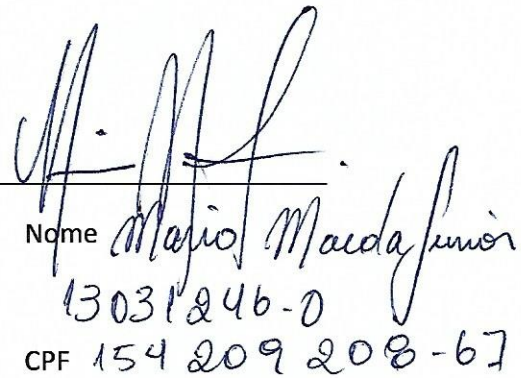 Nome Mario Maeda Junior
13031246-0
CPF 154 209 208-67